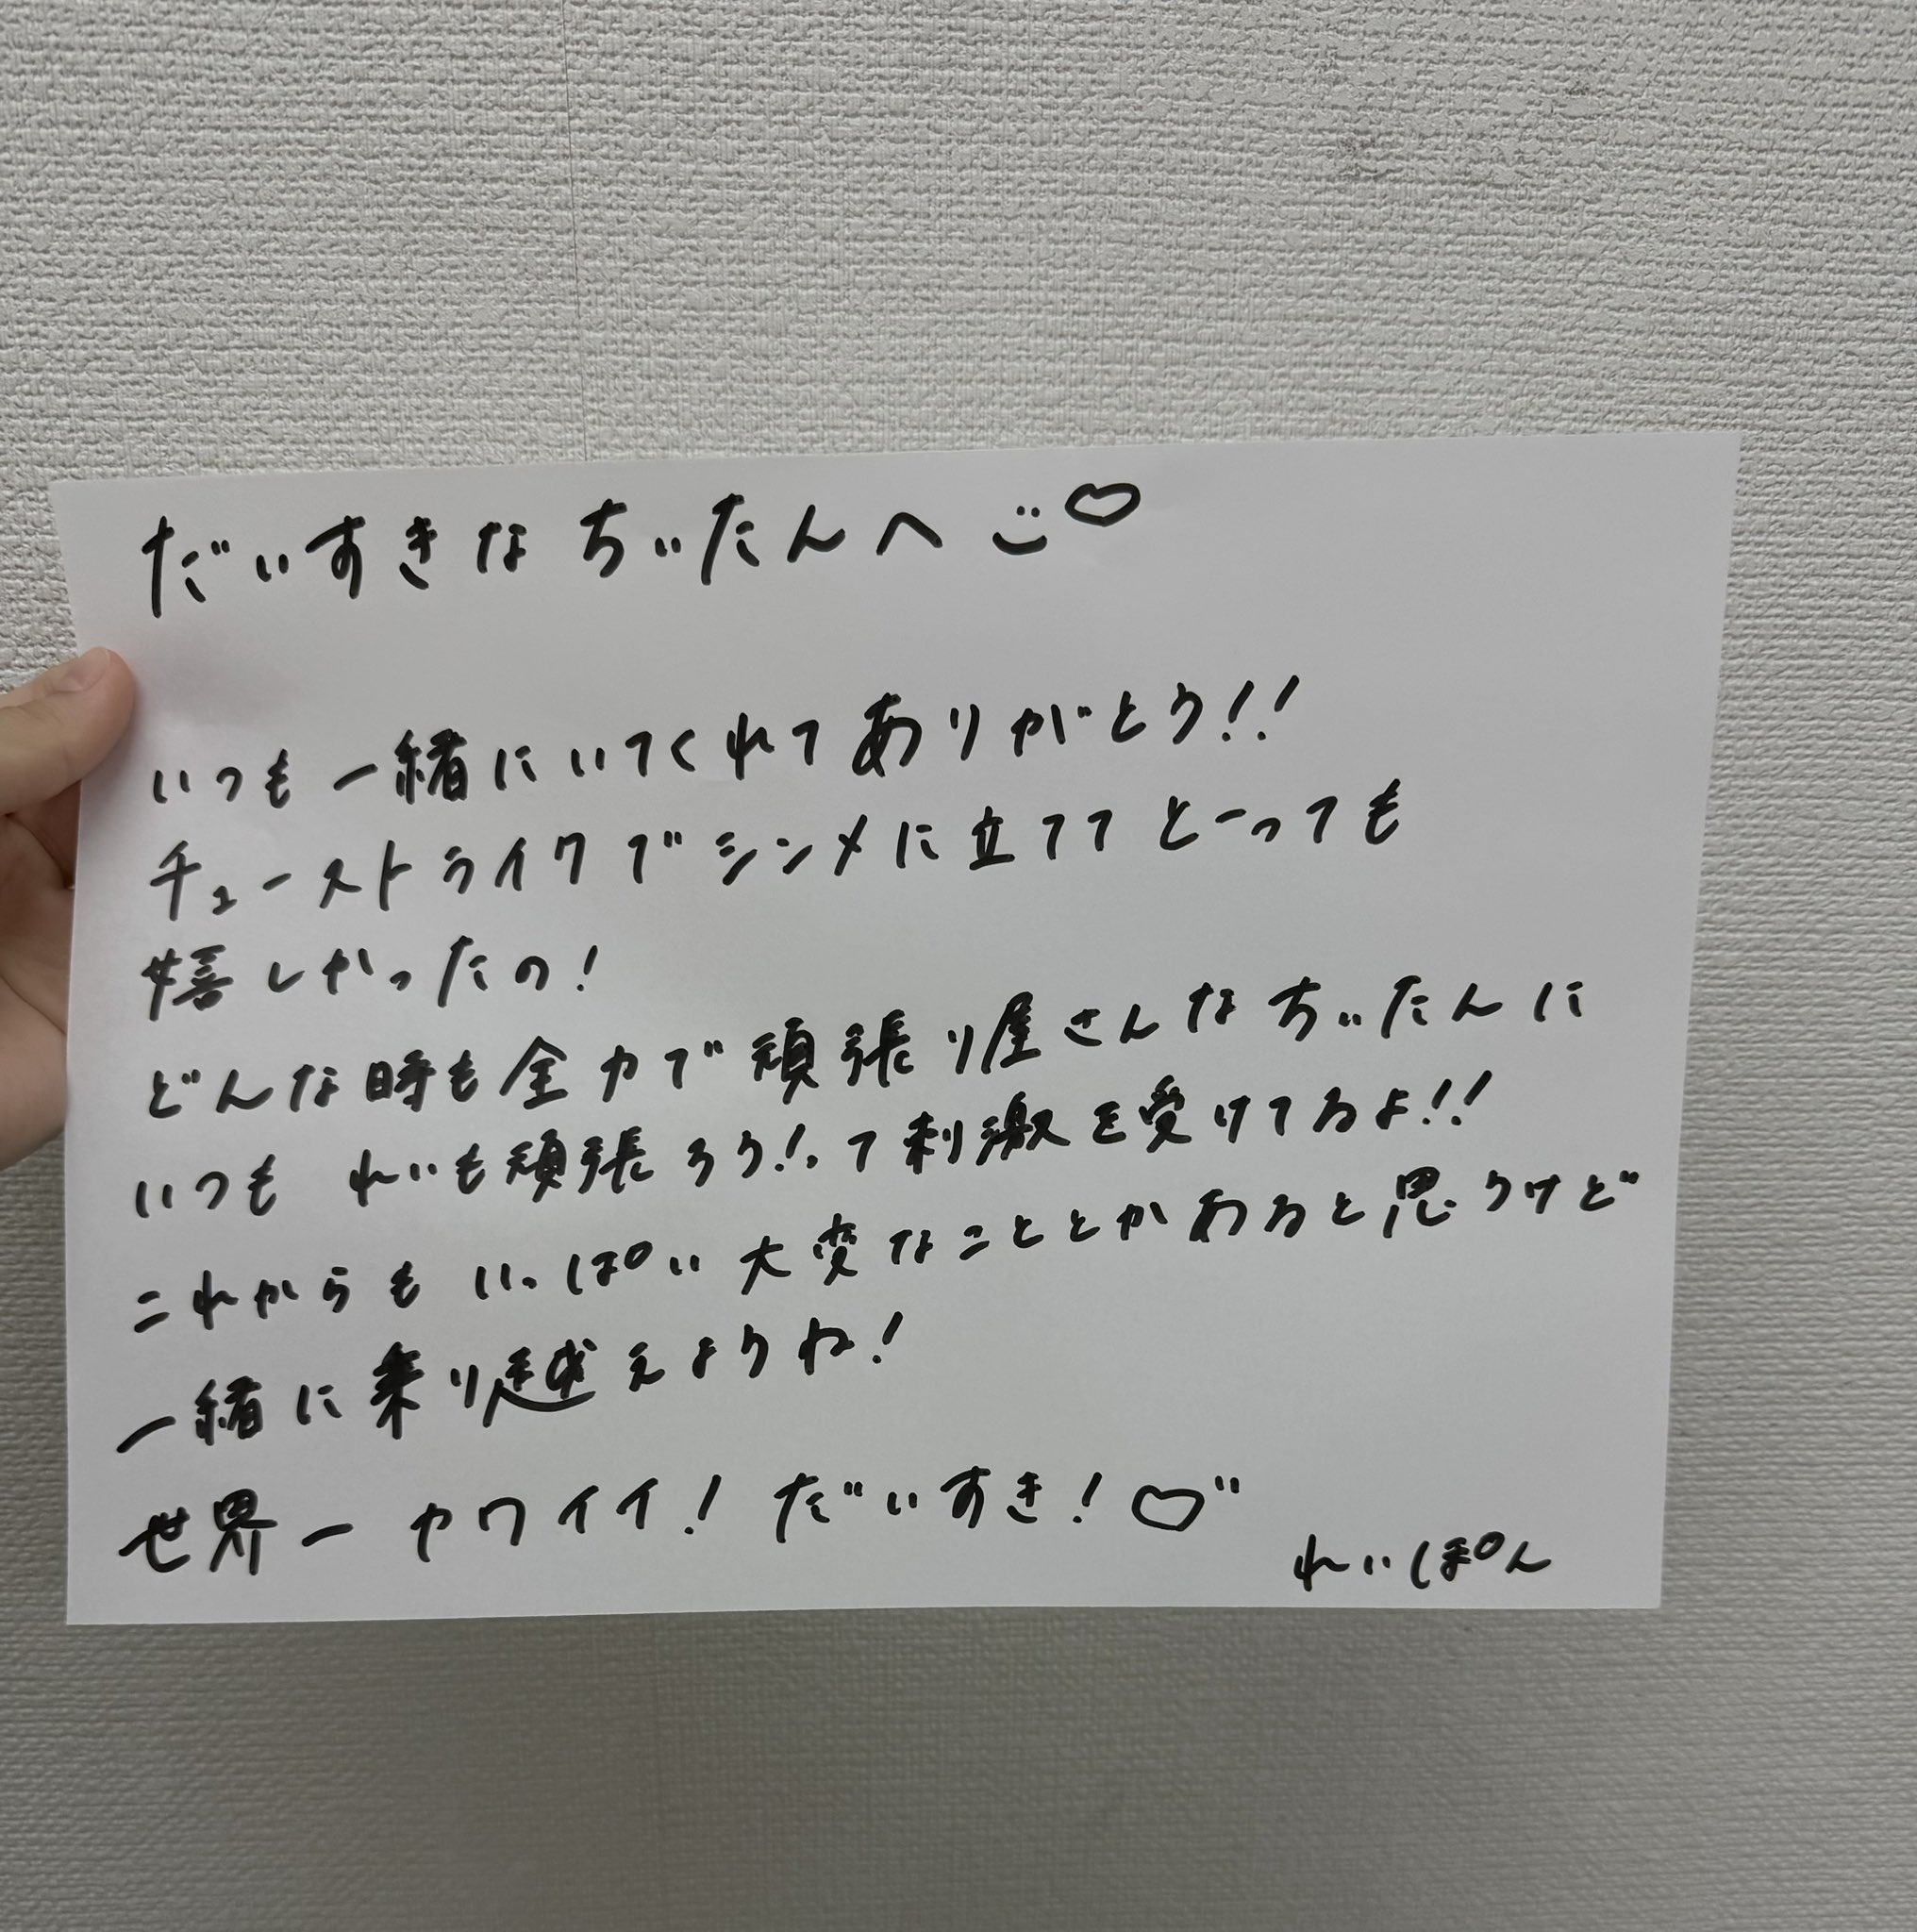 だいすきなちぃたんへ ♡
いつも一緒にいてくれてありがとう!!
チューストライクでシンメに立ててとーっても
嬉しかったの!
どんな時も全力で頑張り屋さんなちぃたんに
いつも れいも頑張ろう!って刺激を受けてるよ!!
これからも いっぱい大変なこととかあると思うけど
一緒に乗り越えようね!
世界一カワイイ! だいすき! ♡"
れいぽん